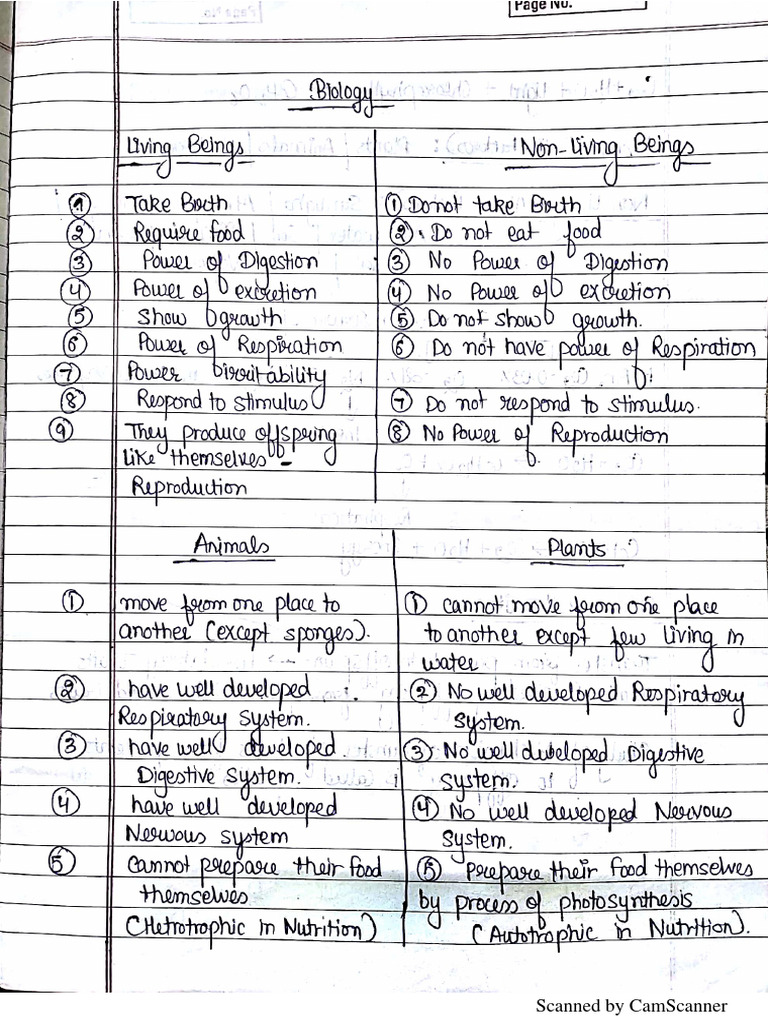 Page No.
Biology
Living Beings Non-Living Beings
1 Take Birth ① Do not take Birth
② Require food ② Do not eat food
③ Power of Digestion ③ No Power of Digestion
④ Power of excretion ④ No Power of excretion
⑤ Show growth ⑤ Do not show growth.
⑥ Power of Respiration ⑥ Do not have power of Respiration
⑦ Power irritability
⑧ Respond to stimulus ⑦ Do not respond to stimulus.
⑨ They produce offspring ⑧ No Power of Reproduction
like themselves -
Reproduction
Animals Plants
① move from one place to ① cannot move from one place
another (except sponges). to another except few living in
water
② have well developed ② No well developed Respiratory
Respiratory system. system.
③ have well developed ③ No well dubeloped Digestive
Digestive system. system.
④ have well developed ④ No well developed Nervous
Nervous system system.
⑤ Cannot prepare their food ⑤ prepare their food themselves
themselves by process of photosynthesis
(Hetrotrophic in Nutrition) (Autotrophic in Nutrition).
Scanned by CamScanner